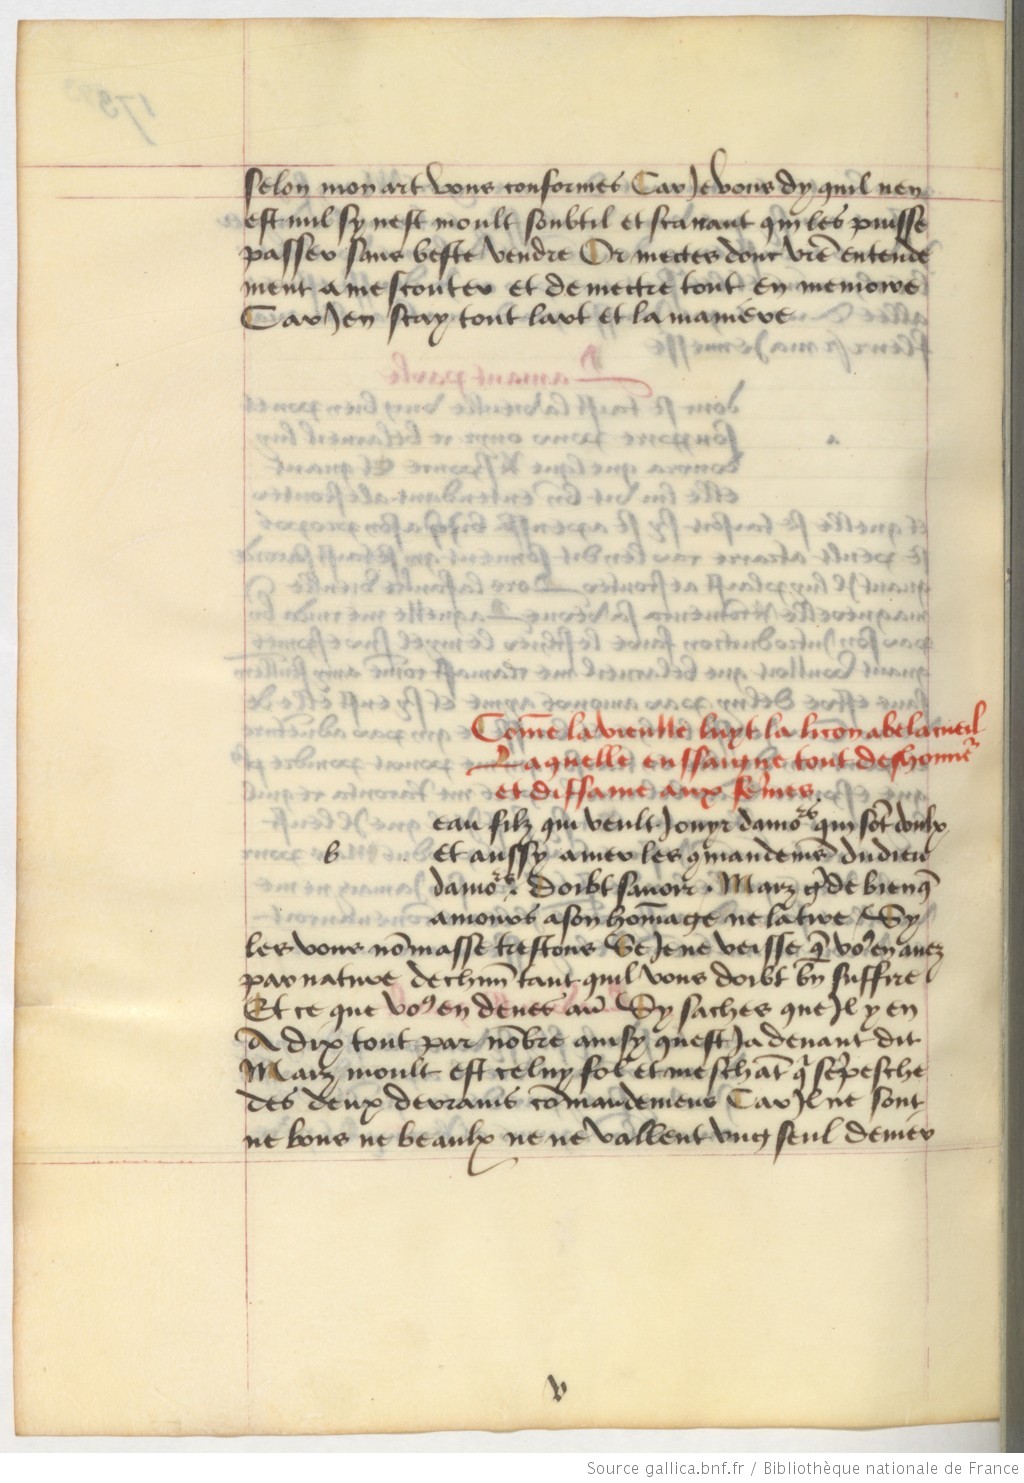 selon mon art vous conformes Car Je vous dy quil nen
est nul sy nest moult soubtil et scauant qui les puisse
passer sans beste vendre Or mectes donc vrē entende
ment a mescouter et de mectre tout en memoire
Car Jen scay tout lart et la maniere
Cōme la vieille luyt la licon a belacueil
Laquelle enssaigne tout deshonnᵉʳ
et diffame aux fēmes
eau filz qui veult Jouyr damoʳˢ qui sōt doulx
b et aussy amer les gmandems̄ dudieu
damoʳˢ. doibt sauoir. Marz gͣde bien q̄
amours a son hom̄age ne latire Sy
les vous nōmasse trestous Se Je ne veisse q̄ voꝰ en auez
par nature de chm̄ tant quil vous doibt bn̄ suffire
Et ce que voꝰ en deues au͛ Sy saches que Jl y en
A dix tout par nōbre ainsy quest Ja deuant dit
Marz moult est celuy fol et meschāt q̇ sēpesche
des deux derrains cōmandemens Car Jl ne sont
ne bons ne beaulx ne ne vallent vng seul denier
v
Source gallica.bnf.fr / Bibliothèque nationale de France